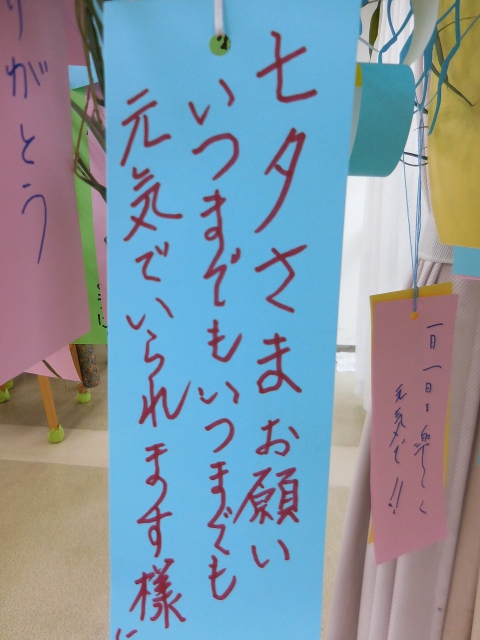 七夕さまお願い
いつまでもいつまでも
元気でいられます様に
一日一日を楽しく
元気で!!
りがとう